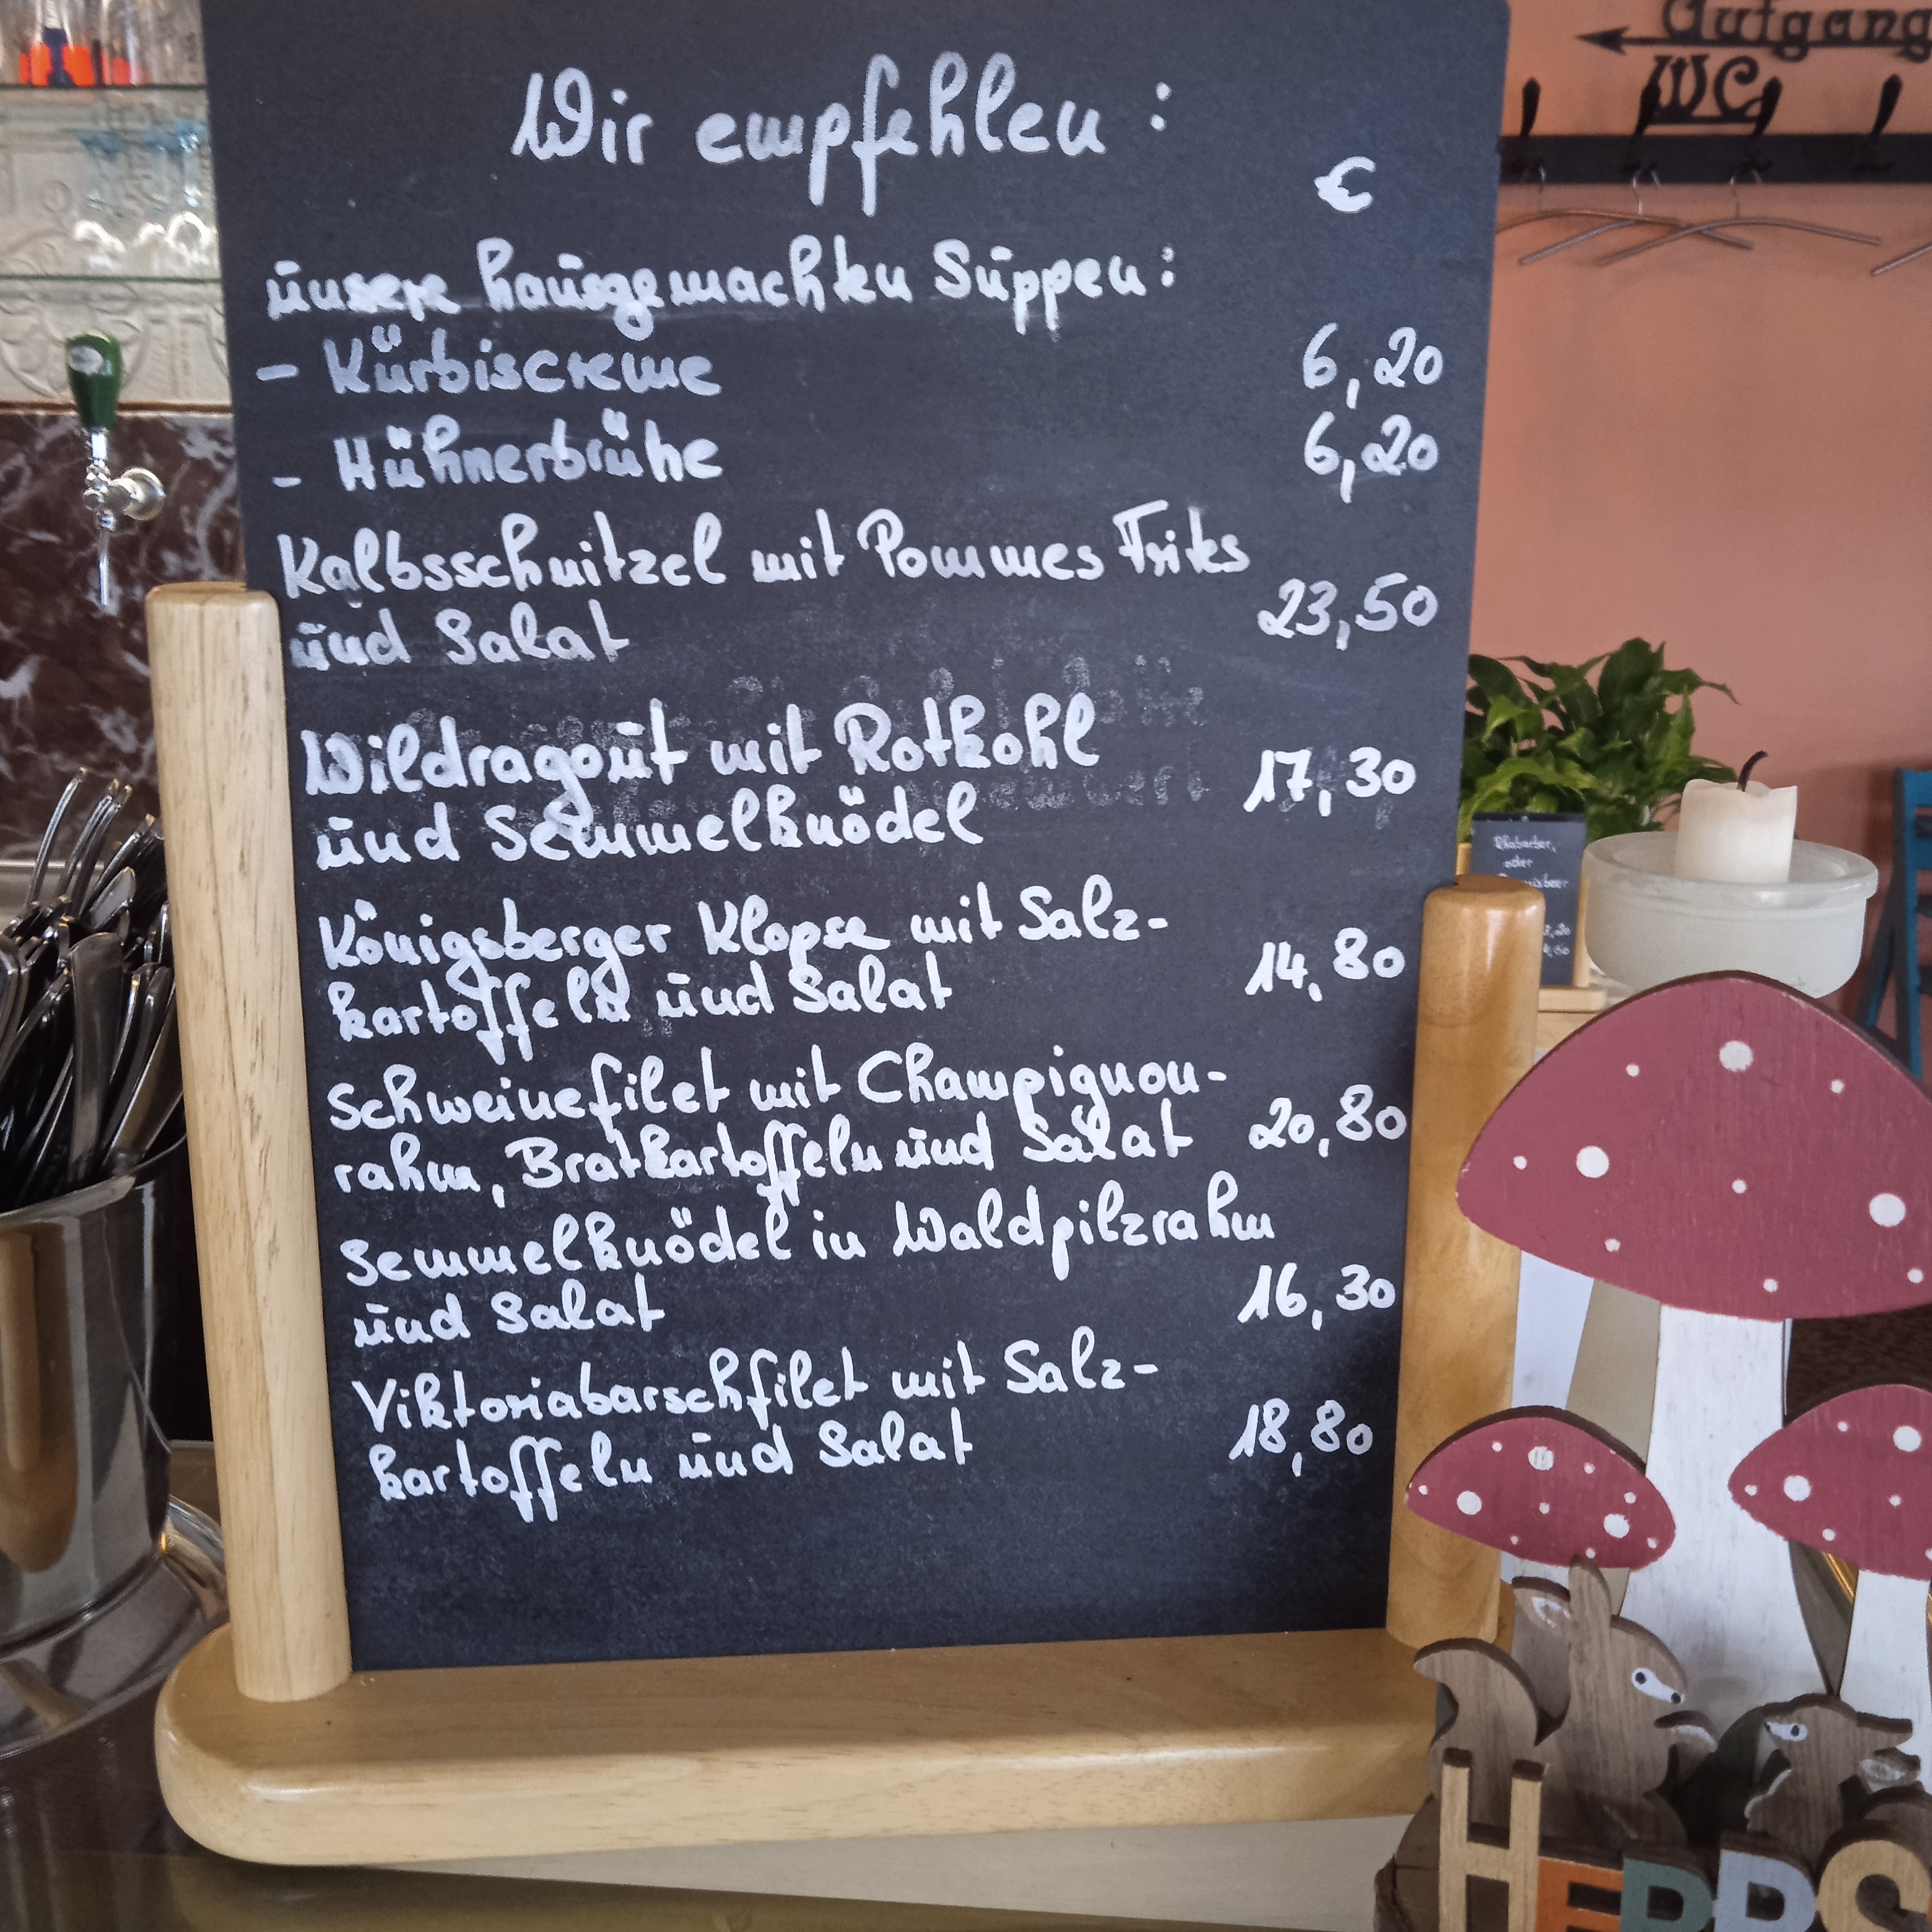 Aufgang
WC
Wir empfehlen :
€
unsere hausgemachten Suppen :
- Kürbiscreme 6,20
- Hühnerbrühe 6,20
Kalbsschnitzel mit Pommes Frites
und Salat 23,50
Wildragout mit Rotkohl
und Semmelknödel 17,30
Königsberger Klopse mit Salz-
kartoffeln und Salat 14,80
Schweinefilet mit Champignon-
rahm, Bratkartoffeln und Salat 20,80
Semmelknödel in Waldpilzrahm
und Salat 16,30
Viktoriabarschfilet mit Salz-
kartoffeln und Salat 18,80
Rhabarber,
oder
HERBS